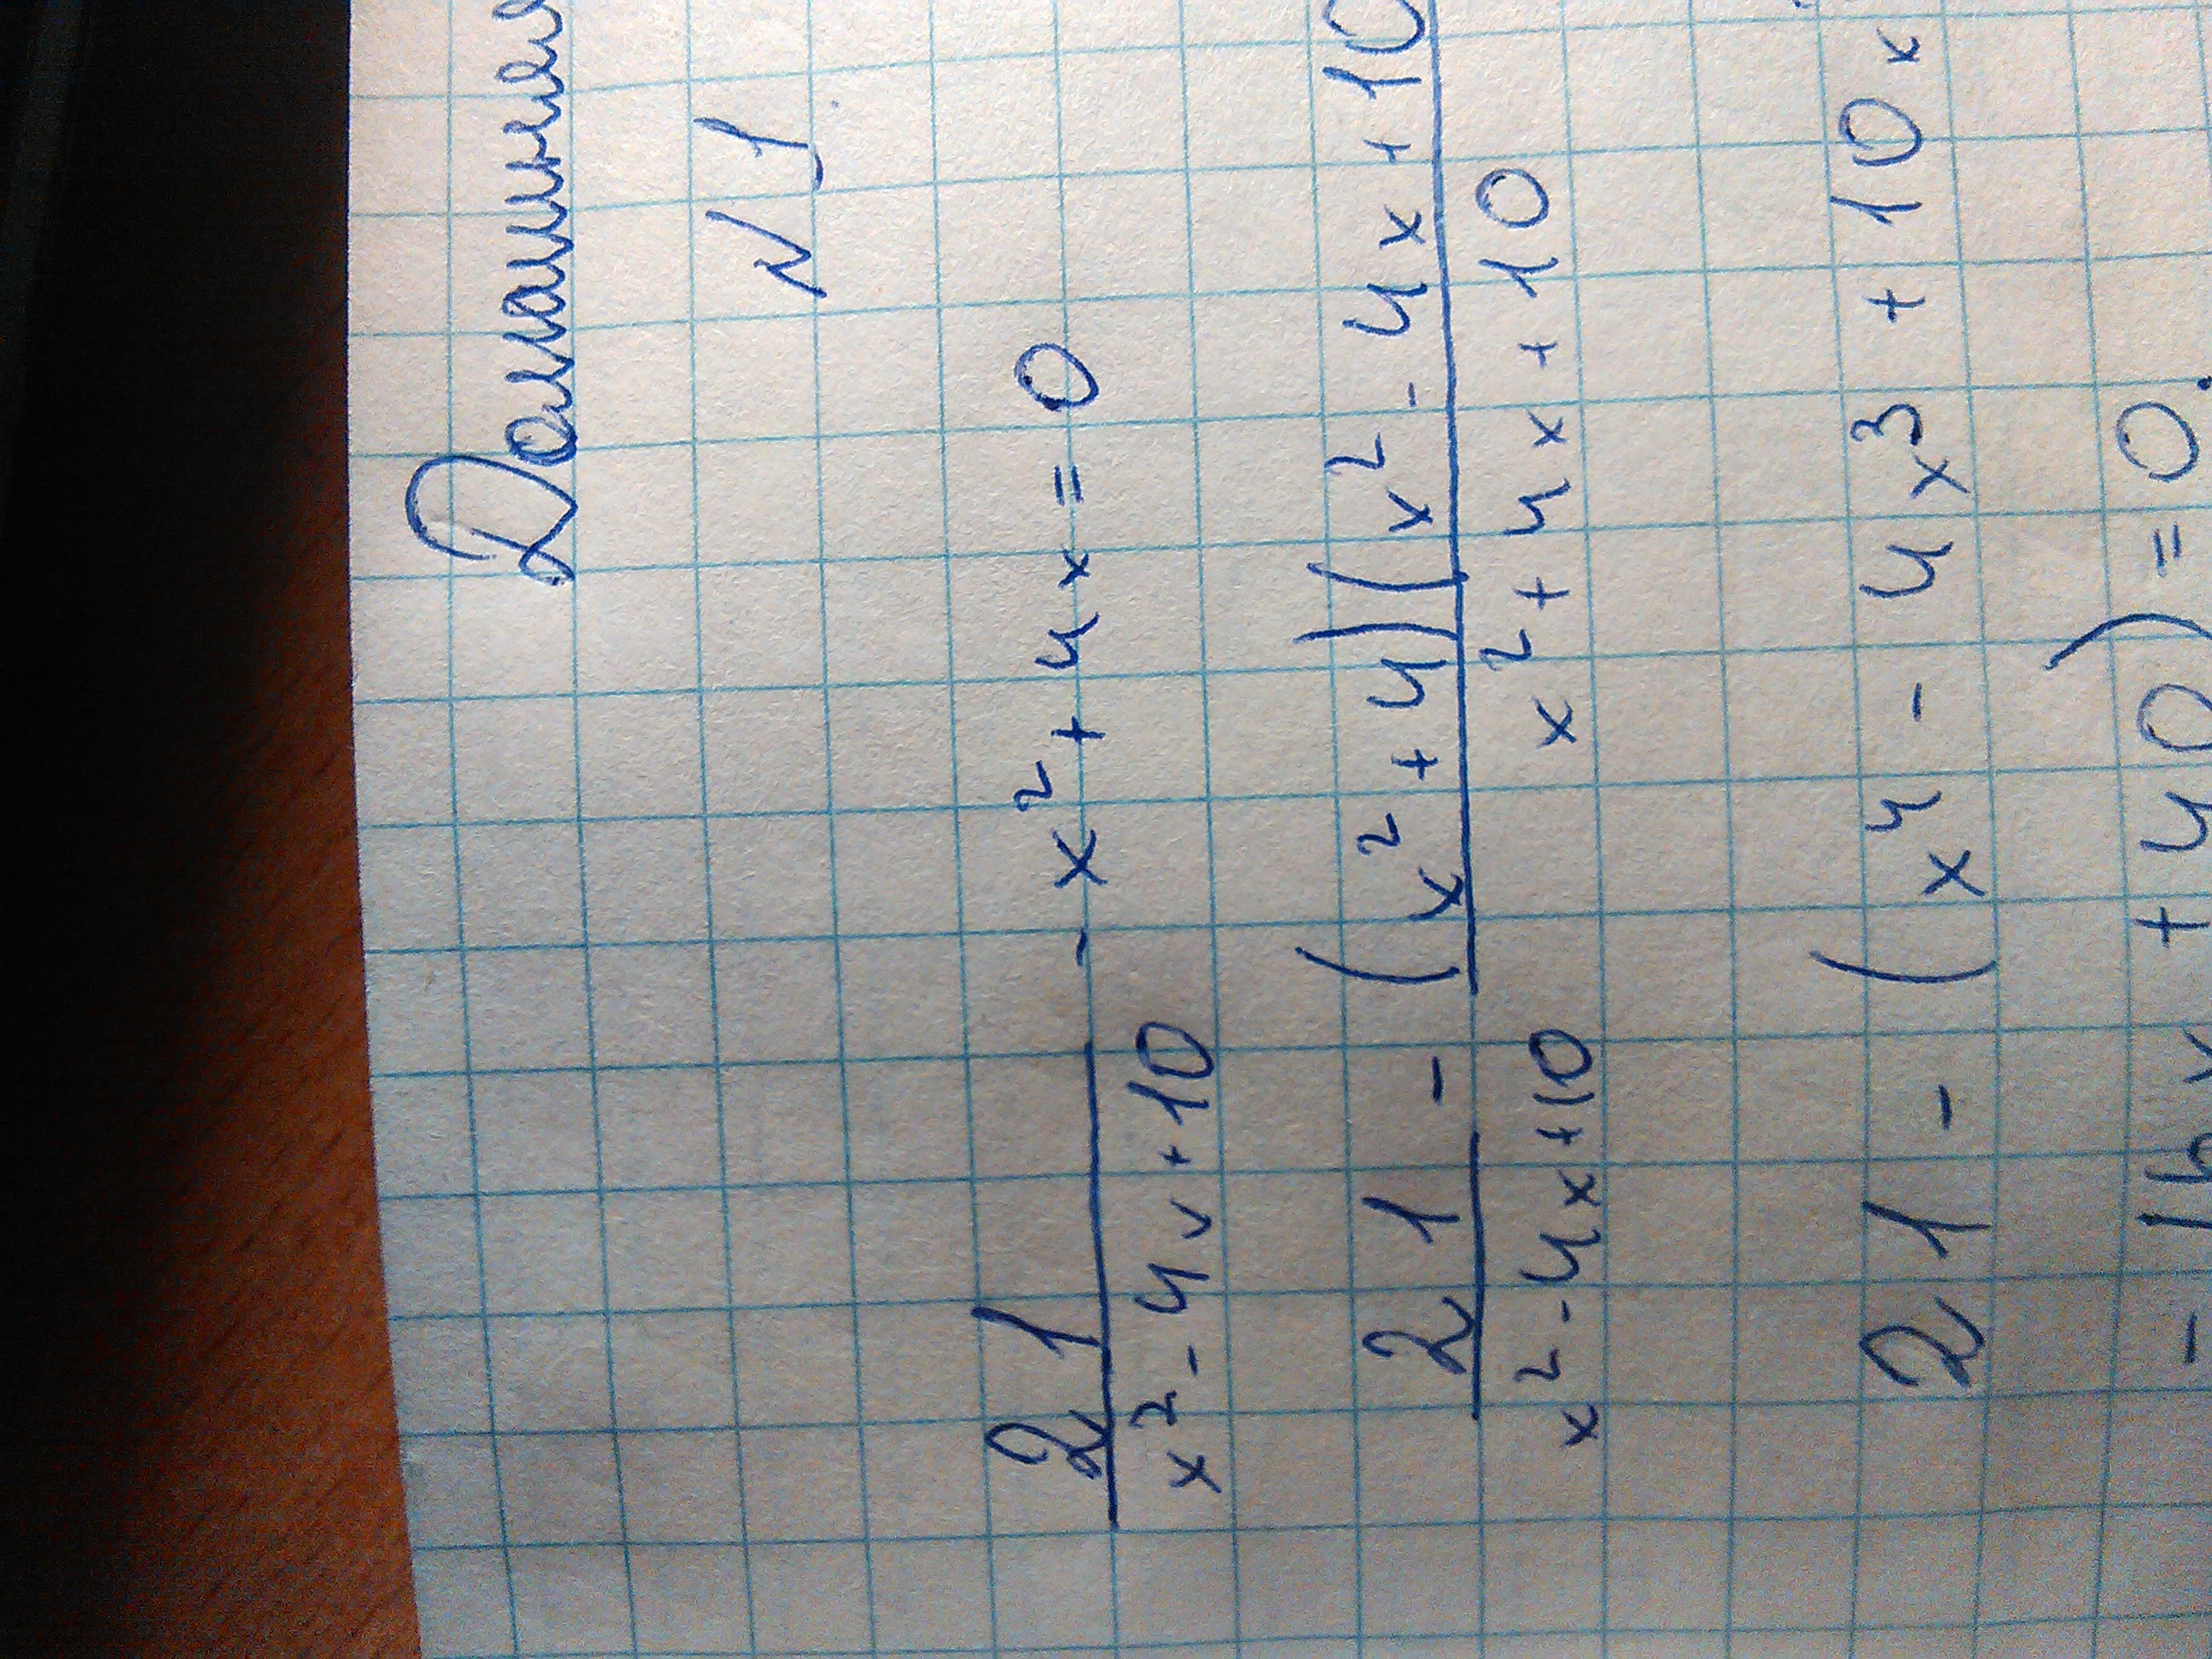 Домашне
N 1
21/(x² - 4x + 10) - x² + 4x = 0
21/(x² - 4x + 10) - (x² + 4)(x² - 4x + 10/(x² + 4x + 10)
21 - (x⁴ - 4x³ + 10x
- 16x + 40) = 0.